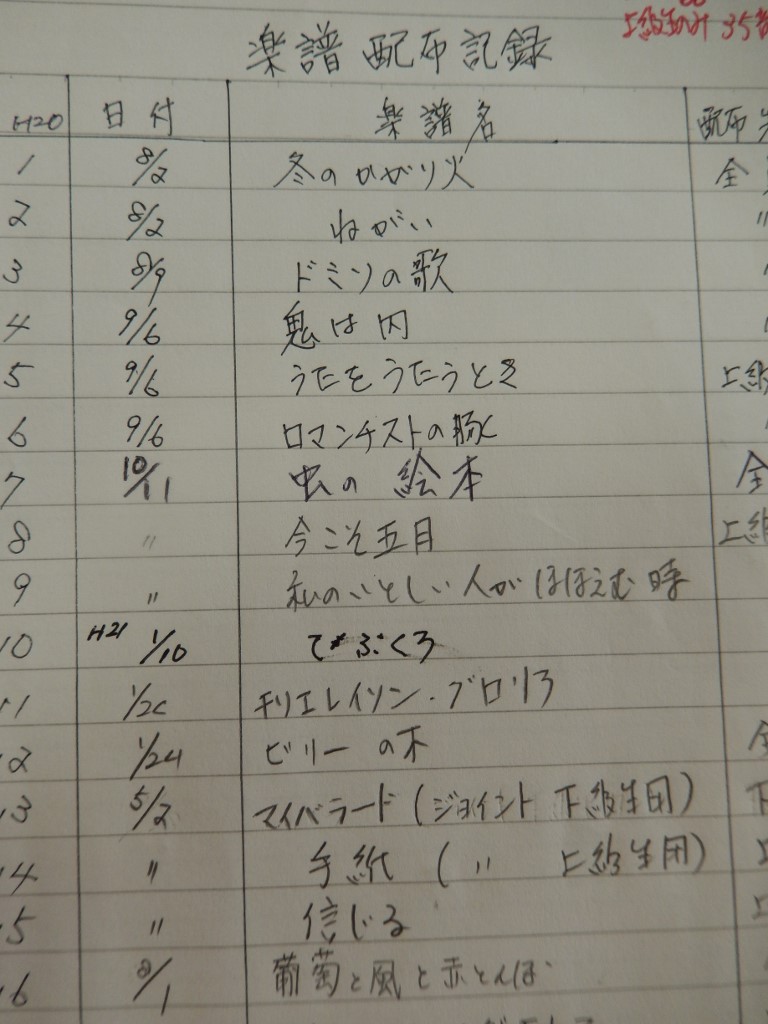 上級生のみ 35
楽譜 配布記録
H20 日付 楽譜名 配布
1 8/2 冬のかがり火 全
2 8/2 ねがい 〃
3 8/9 ドミソの歌 〃
4 9/6 鬼は内 〃
5 9/6 うたをうたうとき 上級
6 9/6 ロマンチストの豚 〃
7 10/11 虫の絵本 全
8 〃 今こそ五月 上級
9 〃 私のいとしい人がほほえむ時
10 H21 1/10 てぶくろ
11 キリエレイソン・グロリア
12 1/24 ビリーの木 全
13 5/2 マイバラード(ジョイント 下級生用) 下
14 〃 手紙 (〃 上級生用) 上
15 〃 信じる 上
16 葡萄と風と赤とんぼ